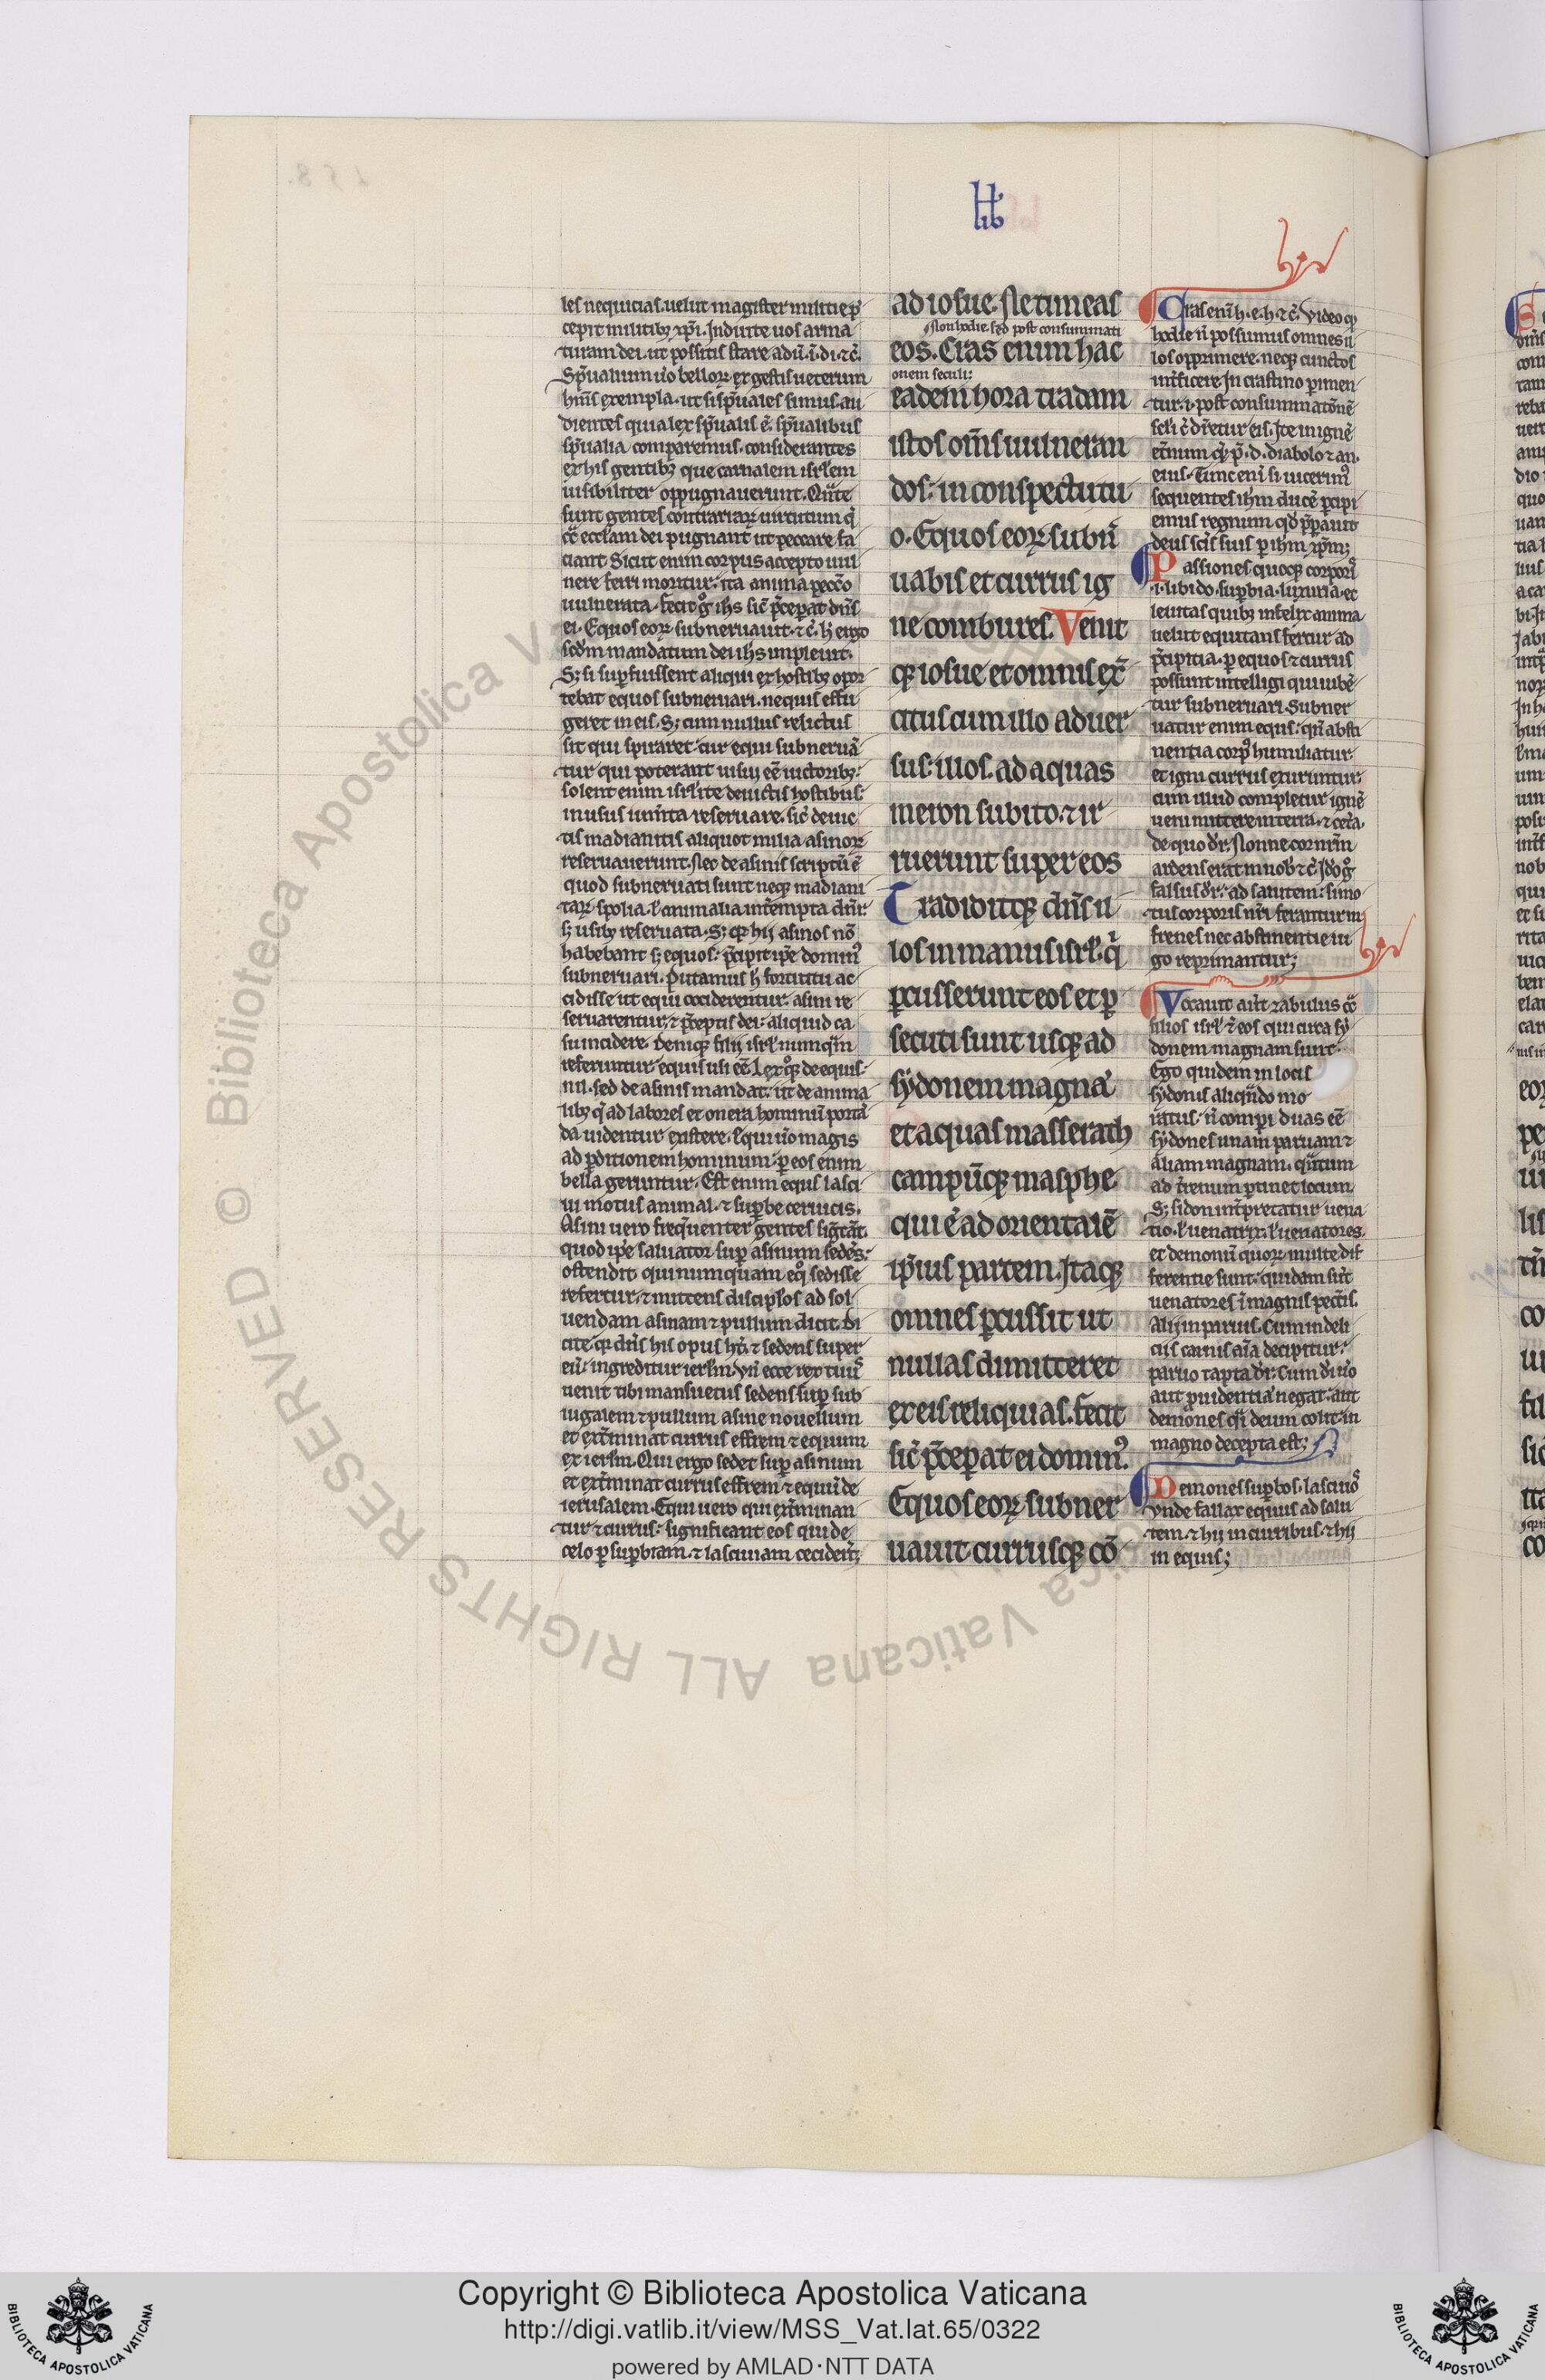 lib
les nequicias. uelut magister militie p̄
cepit militibꝫ xp̄i. Induite uos arma
turam dei. ut possitis stare adū. i. di. ⁊c̄.
Sp̄ualium ūo belloꝝ ex gestis ueterum
hūs exempla. ut si sp̄uales simus. au
dientes quia lex sp̄ualis ē. sp̄ualibus
sp̄ualia comparemus. considerantes
ex his gentibꝫ que carnalem isrl̄em
uisibiliter oppugnauerunt. Q̄nte
sunt gentes contrariaꝝ uirtutum q̄
cō eccl̄am dei pugnant ut peccare fa
ciant Sicut enim corpus accepto uul
nere ferri moritur. ita anima pecc̄o
uulnerata. fecit gͦ ihs sic̄ p̄ceperat dn̄s
ei. Equos eoꝝ subneruauit. ⁊c̄. h̄ ergo
scd̄m mandatum dei ihs impleuit.
Sꝫ si sup̄fuissent aliqui ex hostibꝫ opor
tebat equos subneruari. nequis effu
geret in eis. Sꝫ cum nullus relictus
sit qui spiraret. cur equi subneruā
tur qui poterant usui eē uictoribꝫ.
solent enim isrl̄ite deuictis hostibus
in usus ium̄ta reseruare. sic̄ deuic
tis madianitis aliquot milia asinoꝝ
reseruauerunt. Nec de asinis scriptū ē
quod subneruati sunt neqꝫ madiani
taꝝ spolia. l̄ animalia int̄empta dn̄r.
sꝫ usibꝫ reseruata. Sꝫ qꝛ hii asinos nō
habebant sꝫ equos. p̄cipit ip̄e dominꝰ
subneruari. Putamus h̄ fortuitu ac
cidisse ut equi occiderentur. asini re
seruarentur. ⁊ p̄ceptis dei. aliquid ca
su incidere. Deniqꝫ filii isrl̄ numq̄m
referuntur equis usi eē. Lex qͦqꝫ de equis
nil. sed de asinis mandat. ut de anima
libꝫ q̄ ad labores et onera hominū porta
da uidentur existere. Equi ūo magis
ad ꝑditionem hominum. ꝑ eos enim
bella geruntur. Est enim equs lasci
ui motus animal. ⁊ superbe ceruicis.
Asini uero freq̄uenter gentes sigtāt.
quod ip̄e saluator sup̄ asinum sedēs.
ostendit. qui numquam eqͦ sedisse
refertur. ⁊ mittens discip̄los ad sol
uendam asinam ⁊ pullum dicit. Di
cite qꝛ dn̄s his opus ht̄. ⁊ sedens super
eū. ingreditur ierl̄m. Vn̄ ecce rex tuus
uenit tibi mansuetus sedens sup̄ sub
iugalem ⁊ pullum asine nouellum
et ext̄minat currus effrem ⁊ equum
ex ierl̄m. Qui ergo sedet sup̄ asinum
et ext̄minat currus effrem ⁊ equū de
ierusalem. Equi uero qui ext̄minan
tur ⁊ currus. significant eos qui de
celo ꝑ sup̄biam. ⁊ lasciuiam cecider̄t;
ad iosue. Ne timeas
Non hodie. sed post consummati
eos. Cras enim hac
onem seculi:
eadem hora tradam
istos om̄s uulneran
dos. in conspectu tu
o. Equos eoꝝ subn̄
uabis et currus ig
ne combures. Venit
qꝫ iosue et omnis ex̄
citus cum illo aduer
sus illos. ad aquas
meron subito. ⁊ ir
ruerunt super eos
Tradiditqꝫ dn̄s il
los in manus isrl̄. q̄
ꝑcusserunt eos et ꝑ
secuti sunt usqꝫ ad
sydonem magnā
et aquas masserath
campūqꝫ masphe
qui ē ad orientalē
ip̄ius partem. Itaqꝫ
omnes ꝑcussit ut
nullas dimitteret
ex eis reliquias. Fecit
sic̄ p̄ceperat ei dominꝰ.
Equos eoꝝ subner
uauit currusqꝫ cō
Cras enī h. e. h. ⁊c̄. Video qꝫ
hodie n̄ possumus omnes il
los opprimere. neqꝫ cunctos
int̄ficere. In crastino ꝑimen
tur. i. post consummatōnē
sc̄li c̄ dicetur eis. Ite in ignē
et̄num q̄ p̄. d. diabolo ⁊ an.
eius. Tunc enī si uicerimꝰ
sequentes ih̄m ducē ꝑcipi
emus regnum qd̄ p̄parauit
deus scīs suis ꝑ ih̄m xp̄m;
Passiones quoqꝫ corporꝭ
.i. libido. sup̄bia. luxuria. et
leuitas quibꝫ infelix anima
uelut equitans fertur ad
p̄cipitia. ꝑ equos ⁊ currus
possunt intelligi qui iubē
tur subneruari. Subner
uatur enim equs. qn̄ absti
nentia corpꝰ humiliatur.
et igni currus exuruntur.
cum illud completur ignē
ueni mittere in terrā. ⁊ cet̄a.
de quo dr̄. Nonne cor nr̄m
ardens erat in nob̄ ⁊c̄. Id̄o gͦ
falsus dr̄. ad salutem. si mo
tus corporis nr̄i ferantur in
frenes nec abstinentie iu
go reprimantur;
Vocauit aut̄ zabulus cō
filios isrl̄ ⁊ eos qui circa sy
donem magnam sunt.
Ego quidem in locis
sydonis aliqn̄do mo
ratus. n̄ comꝑi duas eē
sydones unam paruam ⁊
aliam magnam. q̄ntum
ad t̄renum ꝑtinet locum
Sꝫ sidon int̄pretatur uena
tio. l̄ uenatrix. l̄ uenatores.
et demonū quoꝝ multe dif
ferentie sunt. quidam sūt
uenatores ī magnis pecc̄is.
Alii in paruis. Cum in deli
ciis carnis aīa decipitur.
paruo capta dr̄. Cum d̄m ūo
aut ꝓuidentiā negat. aut
demones q̄i deum colit. in
magno decepta est;
Demones sup̄bos. lasciuos
Vnde fallax equus ad salu
tem. ⁊ hii in curribus. ⁊ hii
in equis;
Copyright © Biblioteca Apostolica Vaticana
http://digi.vatlib.it/view/MSS_Vat.lat.65/0322
powered by AMLAD·NTT DATA
BIBLIOTECA APOSTOLICA VATICANA
BIBLIOTECA APOSTOLICA VATICANA
© Biblioteca Apostolica Vaticana ALL RIGHTS RESERVED